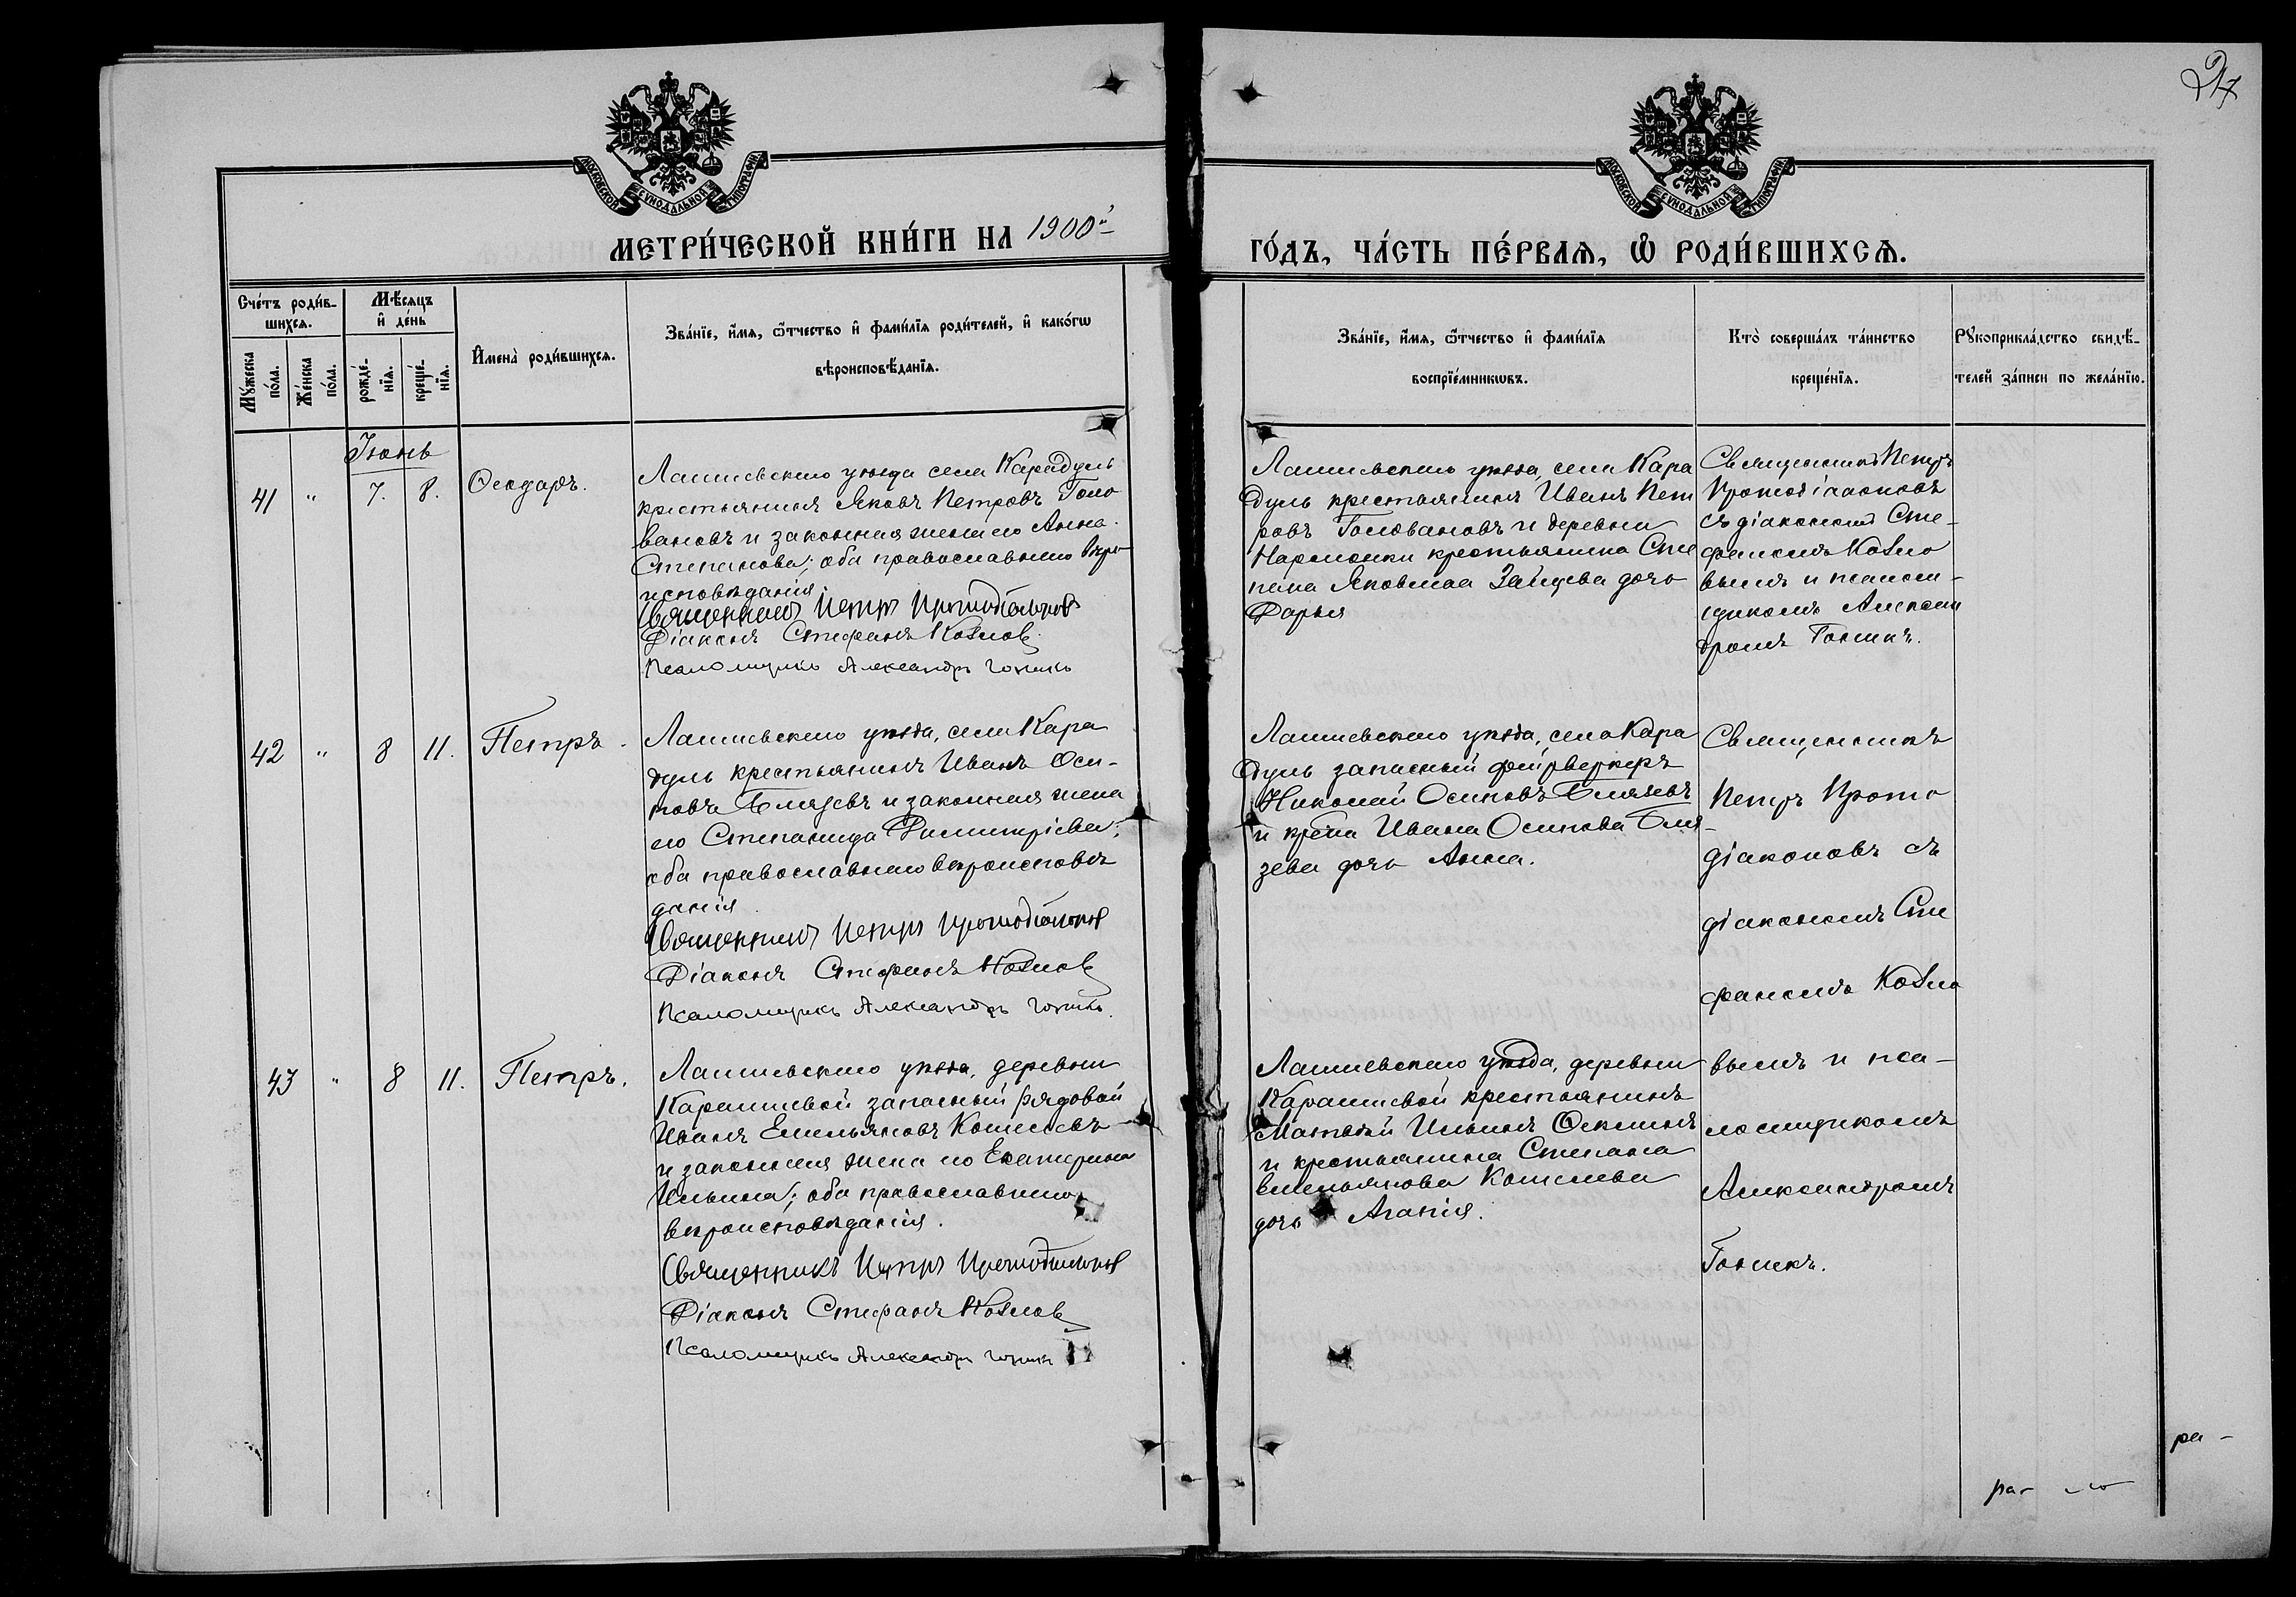 27
МОСКОВСКОЙ СѴНОДАЛЬНОЙ ТИПОГРАФІИ
МОСКОВСКОЙ СѴНОДАЛЬНОЙ ТИПОГРАФІИ
МЕТРИ́ЧЕСКОЙ КНИ́ГИ НА 1900й
ГО́ДЪ, ЧА́СТЬ ПЕ́РВАѦ, Ѽ РОДИ́ВШИХСѦ.
Сче́тъ роди́в-
шихсѧ.
Мꙋ́жеска по́ла.
Же́нска по́ла.
Мѣ́сѧцъ
и҆ де́нь
рожде́-нїѧ.
креще́-нїѧ.
И҆мена̀ роди́вшихсѧ.
Зва́нїе, и҆́мѧ, ѻ҆́тчество и҆ фами́лїѧ роди́телей, и҆ како́гѡ
вѣроисповѣ́данїѧ.
Зва́нїе, и҆́мѧ, ѻ҆́тчество и҆ фами́лїѧ
воспрїе́мникѡвъ.
Кто̀ соверша́лъ та́инство
креще́нїѧ.
Рꙋкоприкла́дство свидѣ́-
телей за́писи по жела́нїю.
Іюнь
41 " 7. 8. Ѳеодоръ.
Лаишевскаго уѣзда села Карадуль
крестьянинъ Яковъ Петровъ Голо
вановъ и законная жена его Анна
Степанова; оба православнаго вѣро
исповѣданія
Священникъ Петръ Протодіаконовъ
Діаконъ Стефанъ Козлов
Псаломщикъ Александръ Гонинъ
Лаишевскаго уѣзда, села Кара
дуль крестьянинъ Иванъ Пет
ровъ Головановъ и деревни
Нармонки крестьянина Сте
пана Яковлева Зайцева дочь
Дарья
Священникъ Петръ
Протодіаконовъ
съ діакономъ Сте-
фаномъ Козло
вымъ и псалом-
щикомъ Алексан
дромъ
42 " 8 11. Петръ.
Лаишевскаго уѣзда, села Кара
дуль крестьянинъ Иванъ Оси-
повъ Блязевъ и законная жена
его Степанида Димитріева;
оба православнаго вѣроисповѣ
данія.
Священникъ Петръ Протодіаконов
Діаконъ Стефанъ Козлов
Псаломщикъ Александръ
Лаишевскаго уѣзда, села Кара
дуль запасный фейрверкеръ
Николай Осиповъ Блязевъ
и кр҃на Ивана Осипова Бля-
зева дочь Анна.
Священникъ
Петръ Прото
діаконовъ съ
діакономъ Сте
фаномъ Козло
вымъ и пса-
ломщикомъ
Александромъ
43 " 8 11. Петръ.
Лаишевскаго уѣзда, деревни
Карашевой запасный рядовой
Иванъ Емельяновъ Кошелевъ
и законная жена его Екатерина
Ильина; оба православнаго
вѣроисповѣданія.
Священникъ Петръ Протодіаконов
Діаконъ Стефанъ Козлов
Псаломщикъ Александръ
Лаишевскаго уѣзда, деревни
Карашевой крестьянинъ
Матвѣй Ильинъ
и крестьянина Степана
Емельянова Кошелева
дочь Агапія.
ра-
ра-